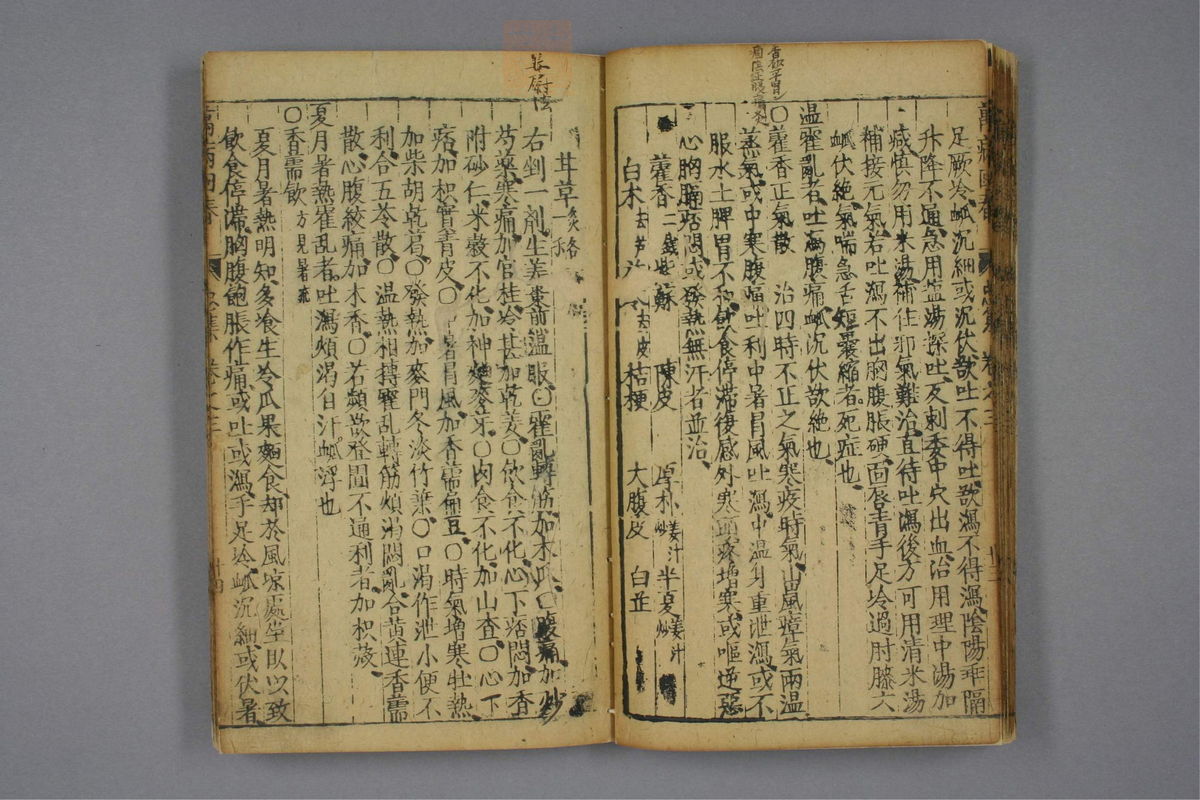 足厥冷脉沉細或沉伏欲吐不得吐欲瀉不得瀉陰陽乖隔
升降不通急用塩湯探吐及刺委中穴出血治用理中湯加
減慎勿用米湯補住邪氣難治直待吐瀉後方可用清米湯
補接元氣若吐瀉不出胸腹脹硬面唇青手足冷過肘膝六
脉伏絶氣喘急舌短囊縮者死症也
温霍亂者吐瀉腹痛脉沉伏欲絶也
〇藿香正氣散 治四時不正之氣寒疫時氣山嵐瘴氣雨温
蒸氣或中寒腹痛吐利中暑冒風吐瀉中温身重泄瀉或不
服水土脾胃不和飲食停滯復感外寒頭疼增寒或嘔逆惡
心胸膈痞悶或發熱無汗者並治
藿香二錢 紫蘇 陳皮 厚朴姜汁炒 半夏姜汁炒
白木去芦 去皮 桔梗 大腹皮 白芷
甘草炙各一
右剉一劑生姜棗煎温服〇霍亂轉筋加木瓜〇腹痛加炒
芍藥寒痛加官桂冷甚加乾姜〇飲食不化心下痞悶加香
附砂仁米穀不化加神麯麥芽〇肉食不化加山查〇心下
痞加枳實青皮〇中暑冒風加香薷扁豆〇時氣增寒壯熱
加柴胡乾葛〇發熱加麥門冬淡竹葉〇口渴作泄小便不
利合五苓散〇温熱相摶霍乱轉筋煩渴悶亂合黄連香薷
散心腹絞痛加木香〇若頻欲登圊不通利者加枳殼
夏月暑熱霍乱者吐瀉煩渴自汗脉浮也
〇香薷飲 方見暑症
夏月暑熱明知多飡生冷瓜果麵食却於風凉處坐臥以致
飲食停滯胸腹飽脹作痛或吐或瀉手足冷脉沉細或伏暑